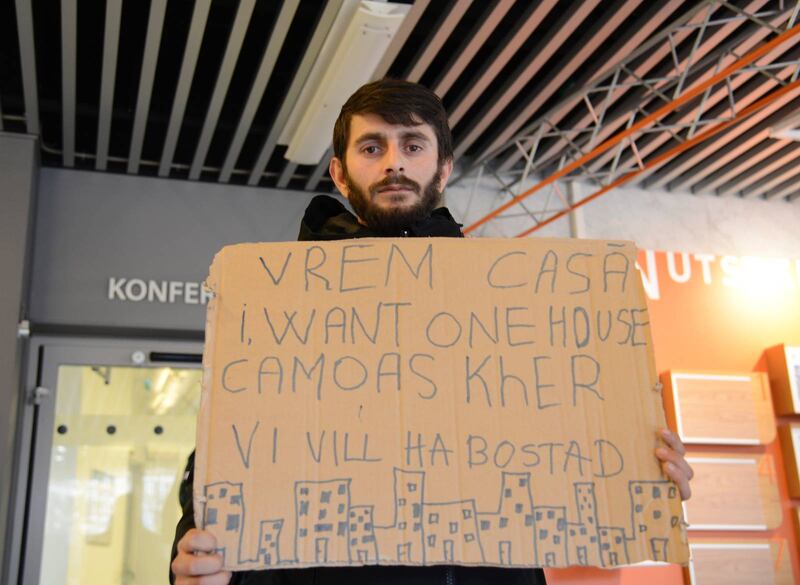 VREM CASĂ
i, WANT ONE HOUSE
CAMOAS KhER
VI VILL HA BOSTAD
KONFER